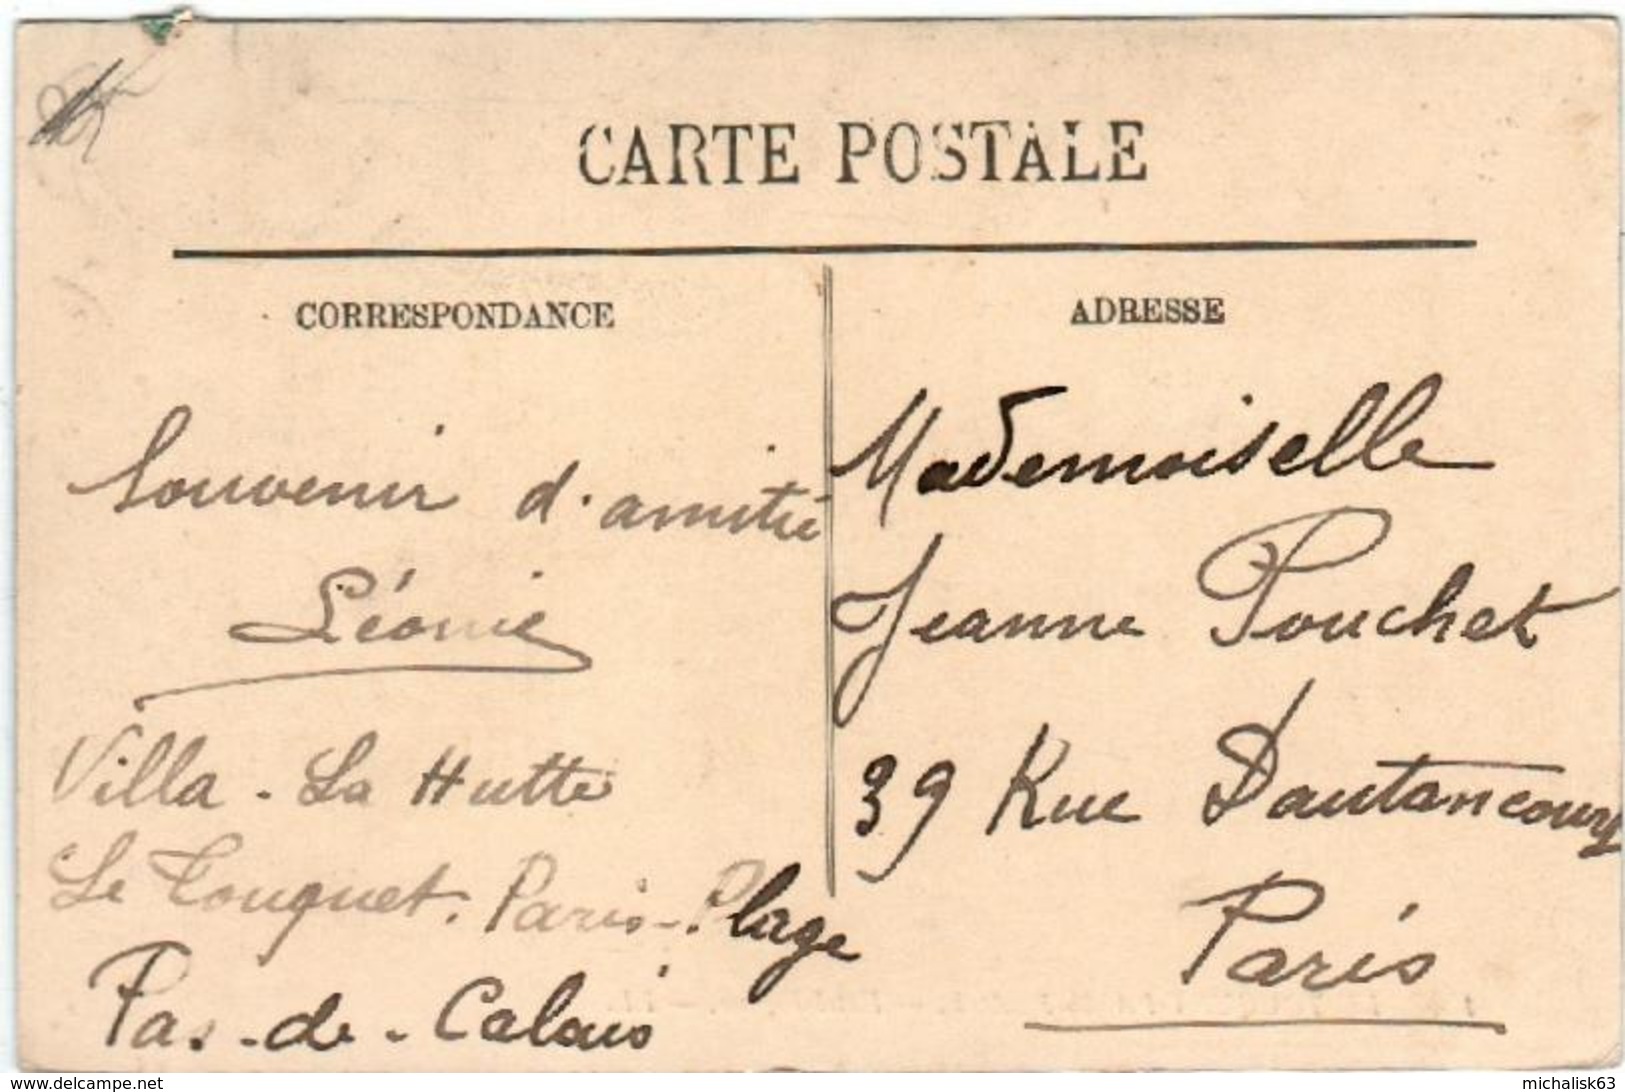 CARTE POSTALE
CORRESPONDANCE
Souvenir d'amitié
Léonie
Villa - La Hutte
Le Touquet. Paris-Plage
Pas-de-Calais
ADRESSE
Mademoiselle
Jeanne Pouchet
39 Rue Dautancourt
Paris
www.delcampe.net
michalisk63